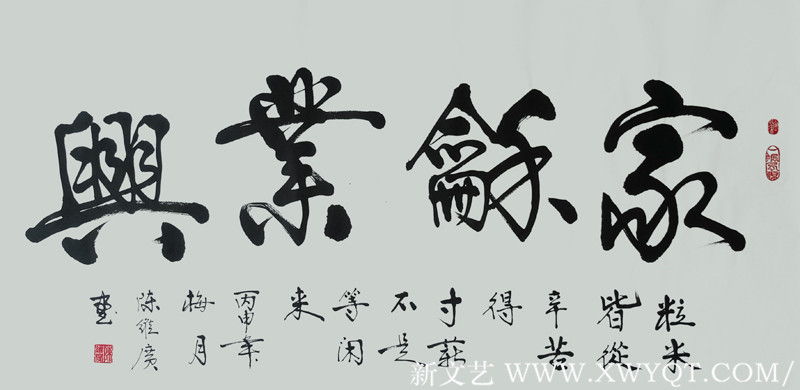 家龢業興
粒米
皆從
辛苦
得
寸
不是
等闲
来
丙申年
梅月
陈维廣
書
新文艺 WWW.XWYQT.COM/